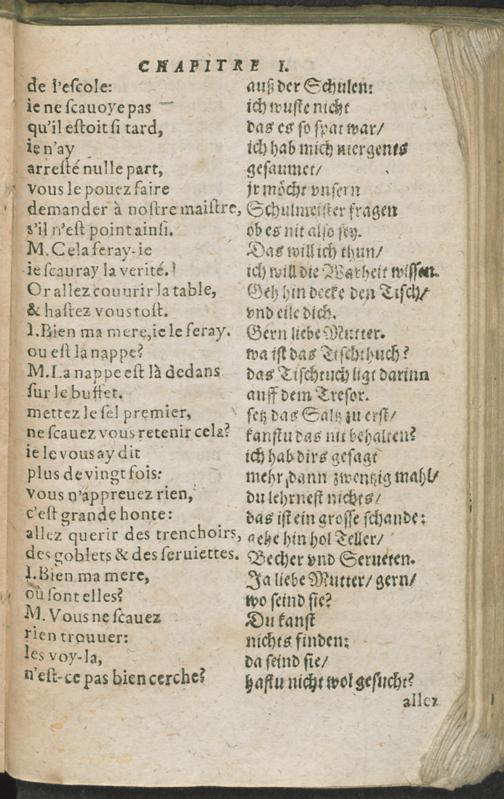 CHAPITRE I.
de l'escole:
ie ne scauoye pas
qu'il estoit si tard,
ie n'ay
arresté nulle part,
vous le pouez faire
demander à nostre maistre,
s'il n'est point ainsi.
M. Cela feray-ie
ie scauray la verité.
Or allez couurir la table,
& hastez vous tost.
I. Bien ma mere, ie le feray.
ou est la nappe?
M. La nappe est là dedans
sur le buffet.
mettez le sel premier,
ne scauez vous retenir cela?
ie le vous ay dit
plus de vingt fois:
vous n'appreuez rien,
c'est grande honte:
allez querir des trenchoirs,
des goblets & des seruiettes.
I. Bien ma mere,
où sont elles?
M. Vous ne scauez
rien trouuer:
les voy-la,
n'est-ce pas bien cerche?
auß der Schulen:
ich wuste nicht
das es so spat war/
ich hab mich niergents
gesaumet/
jr möcht vnsern
Schulmeister fragen
ob es nit also sey.
Das will ich thun/
ich will die Warheit wissen.
Geh hin decke den Tisch/
vnd eile dich.
Gern liebe Mutter.
wa ist das Tischthuch?
das Tischtuch ligt darinn
auff dem Tresor.
setz das Saltz zu erst/
kanstu das nit behalten?
ich hab dirs gesagt
mehr dann zwentzig mahl/
du lehrnest nichts/
das ist ein grosse schande:
gehe hin hol Teller/
Becher vnd Serueten.
Ja liebe Mutter/ gern/
wo seind sie?
Du kanst
nichts finden:
da seind sie/
hastu nicht wol gesucht?
allez